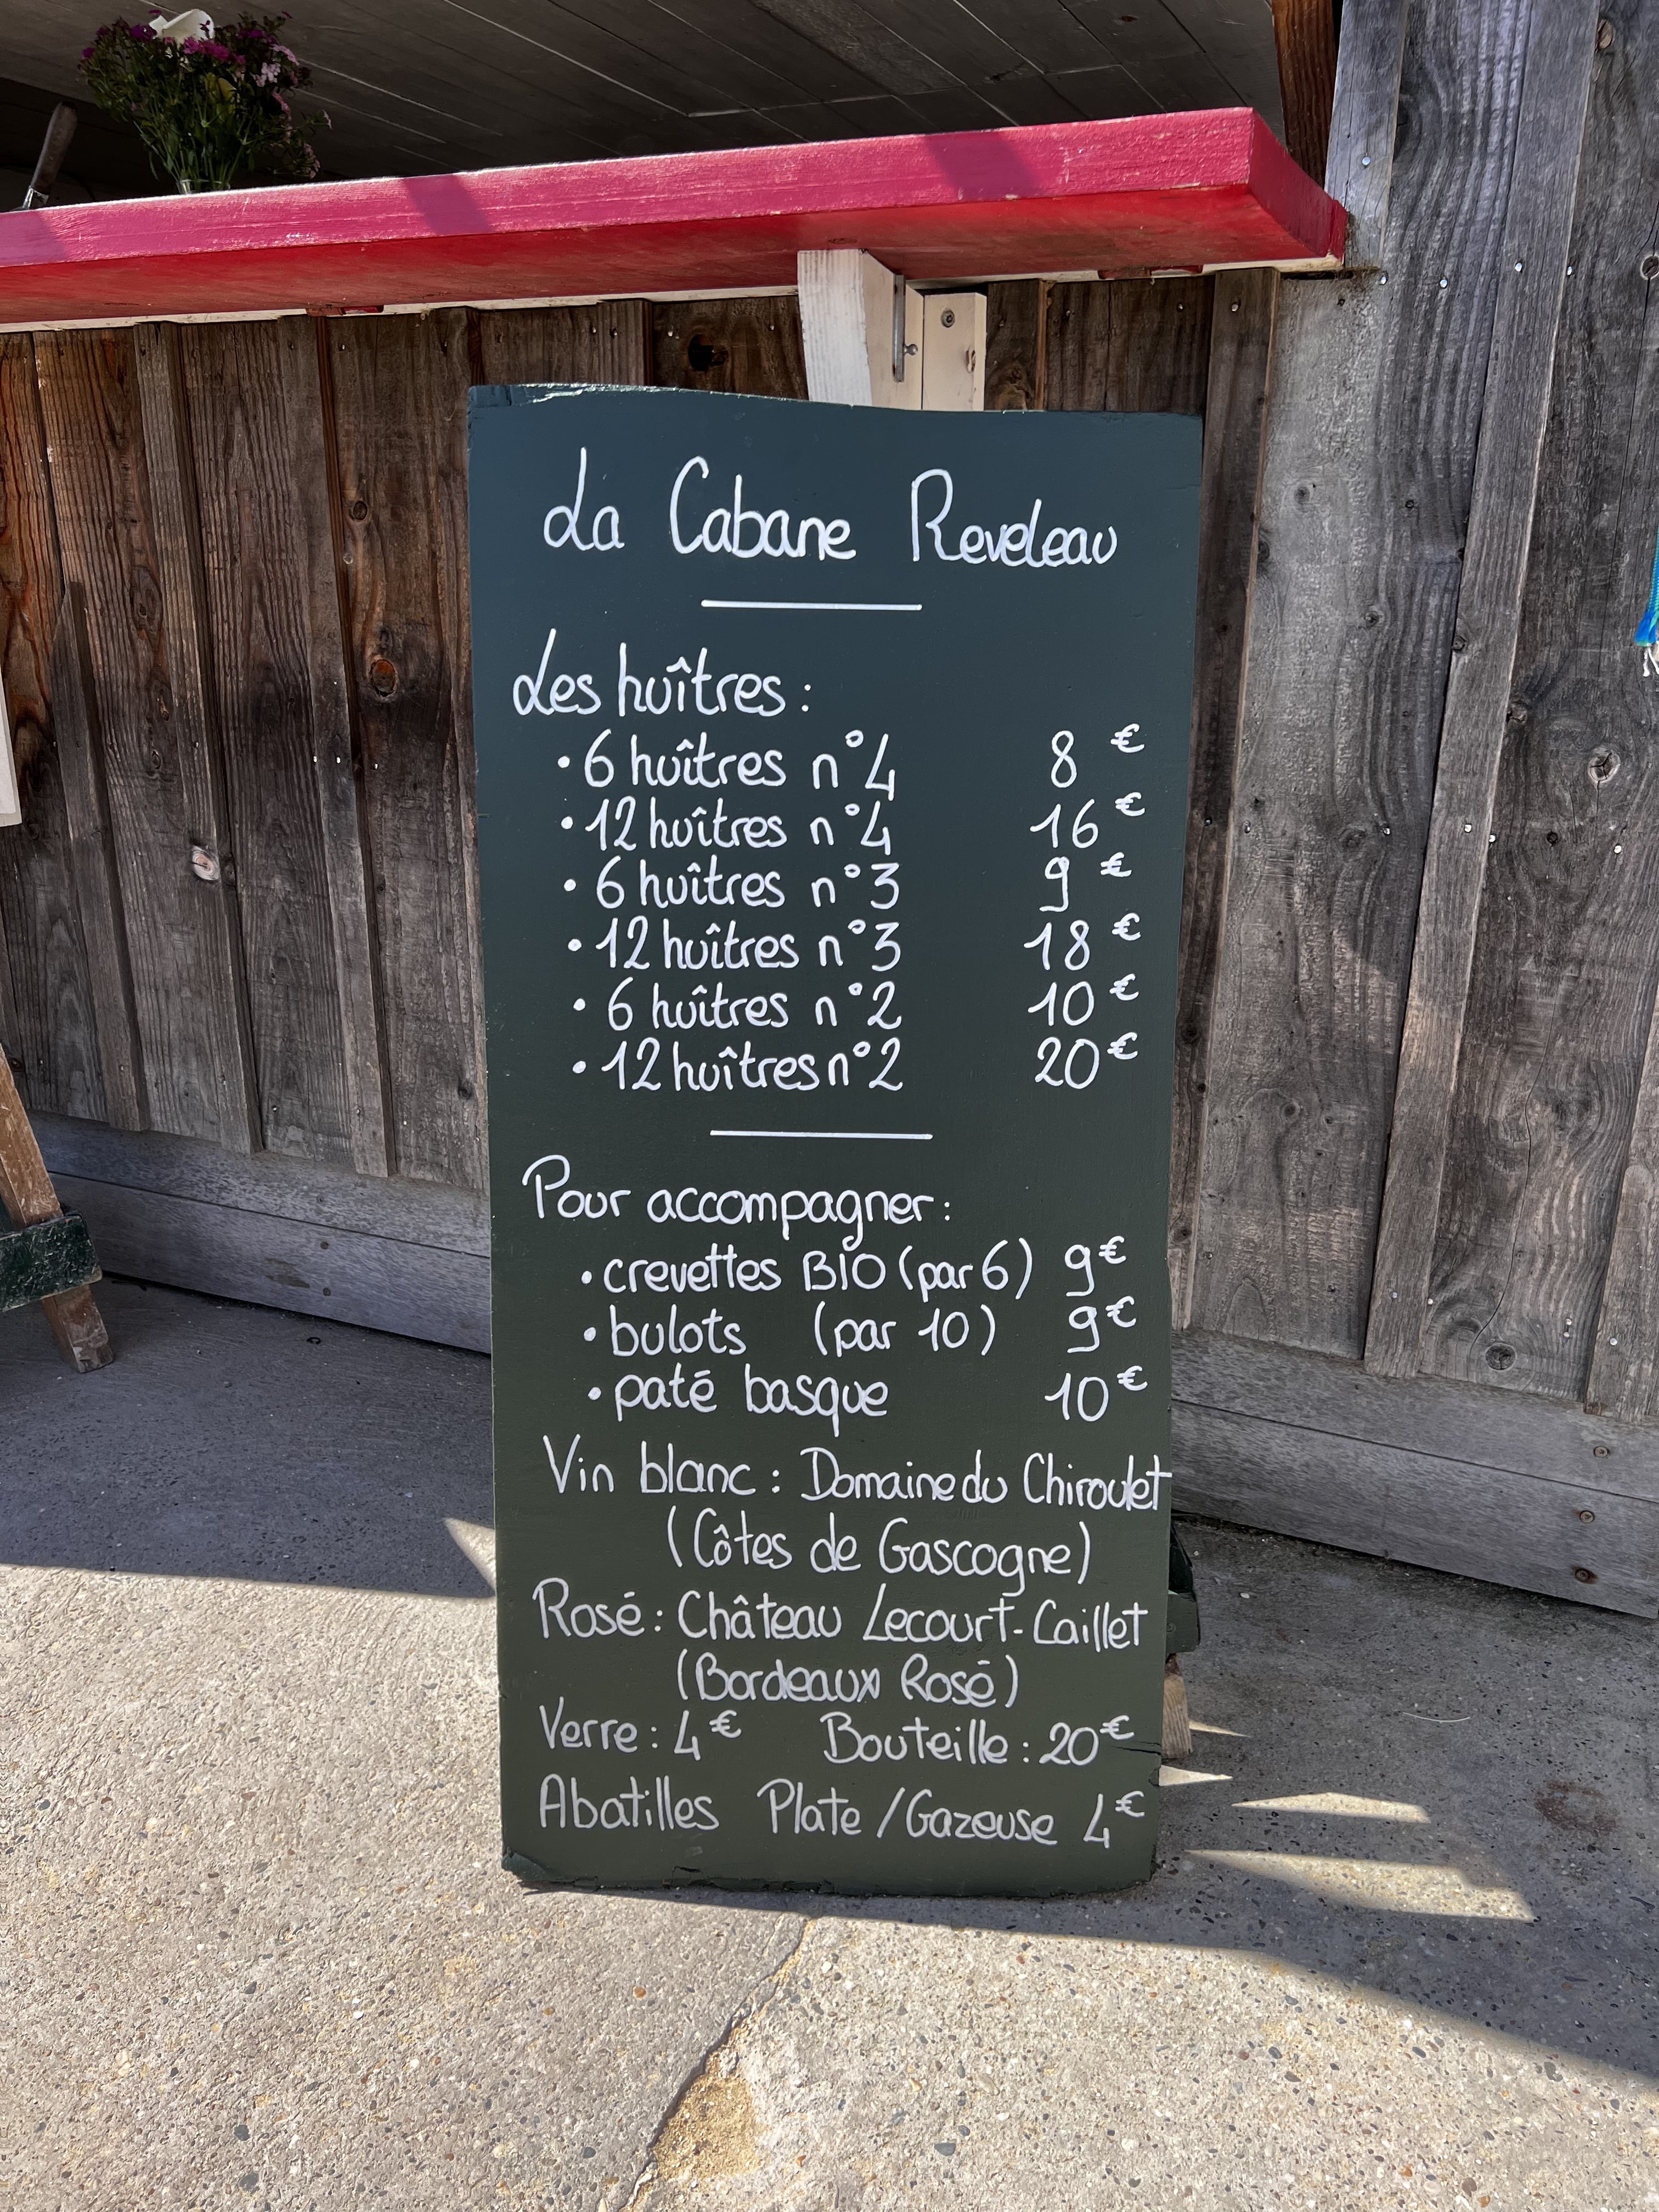 La Cabane Reveleau
Les huîtres :
• 6 huîtres n°4 8 €
• 12 huîtres n°4 16 €
• 6 huîtres n°3 9 €
• 12 huîtres n°3 18 €
• 6 huîtres n°2 10 €
• 12 huîtres n°2 20 €
Pour accompagner :
• crevettes BIO (par 6) 9 €
• bulots (par 10) 9 €
• paté basque 10 €
Vin blanc : Domaine du Chiroulet
(Côtes de Gascogne)
Rosé : Château Lecourt-Caillet
(Bordeaux Rosé)
Verre : 4 € Bouteille : 20 €
Abatilles Plate / Gazeuse 4 €